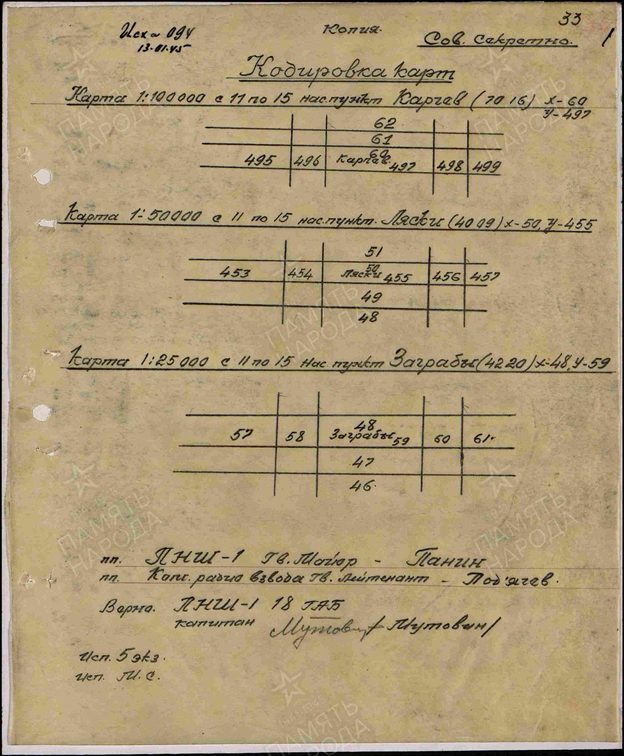 33
Исх № 094
13.01.45
Копия.
Сов. Секретно.
1
Кодировка карт
Карта 1:100000 с 11 по 15 нас. пункт Карчев (7016) х-60
у-497
62
61
60
495 496 Карчев 497 498 499
Карта 1:50000 с 11 по 15 нас. пункт. Ляски (4009) х-50, у-455
51
50
453 454 Ляски 455 456 457
49
48
Карта 1:25000 с 11 по 15 нас. пункт Заграбы (4220) х-48, у-59
48
57 58 Заграбы 59 60 61.
47
46.
пп. ПНШ-1 Гв. Майор - Панин
пп. Ком. радио взвода Гв. Лейтенант - Подъячев.
Верно. ПНШ-1 18 ГАБ
капитан Мутовин /Мутовин/
Исп. 5 экз.
Исп. М. С.
ПАМЯТЬ НАРОДА